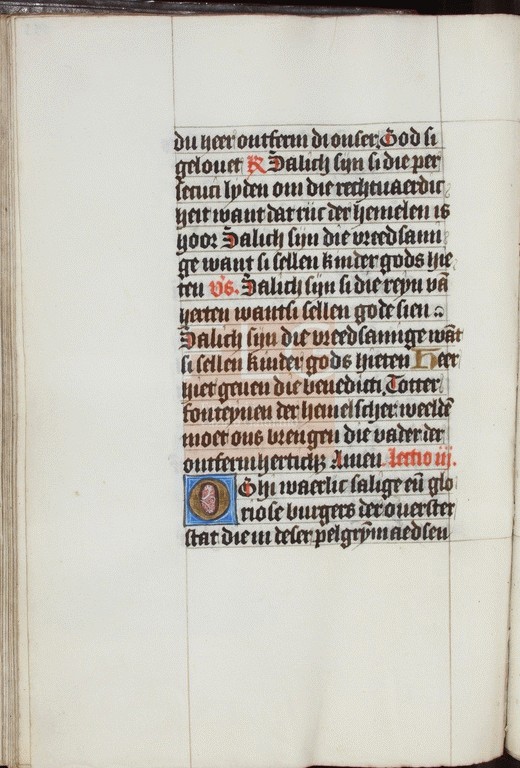 du heer ontferm di onser. God si
gelouet R Salich sijn si die per
secuci lyden om die rechtuaerdic
heit want dat rijc der hemelen is
hoor Salich sijn die vreedsam
ge want si sellen kinder gods hie
ten vs. Salich sijn si die reyn vā
herten want si sellen gode sien
Salich sijn die vreedsamige wāt
si sellen kinder gods hieten Heer
hiet geuen die benedicti. Totter
fonteynen der hemelscher weeldē
moet ons brengen die vader der
ontfermherticħꝫ Amen lectio iij.
O Ghi waerlic salige eñ glo
riose burgers der ouerster
stat die in deser pelgrȳmaedsen